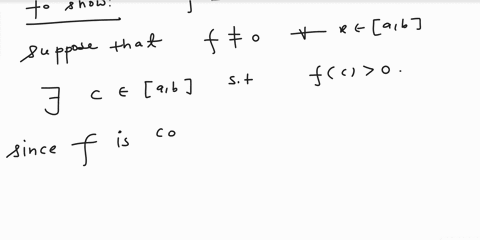 to show:
suppose that f ≠ 0 ∀ x ∈ [a,b]
∃ c ∈ [a,b] s.t f(c) > 0.
since f is co